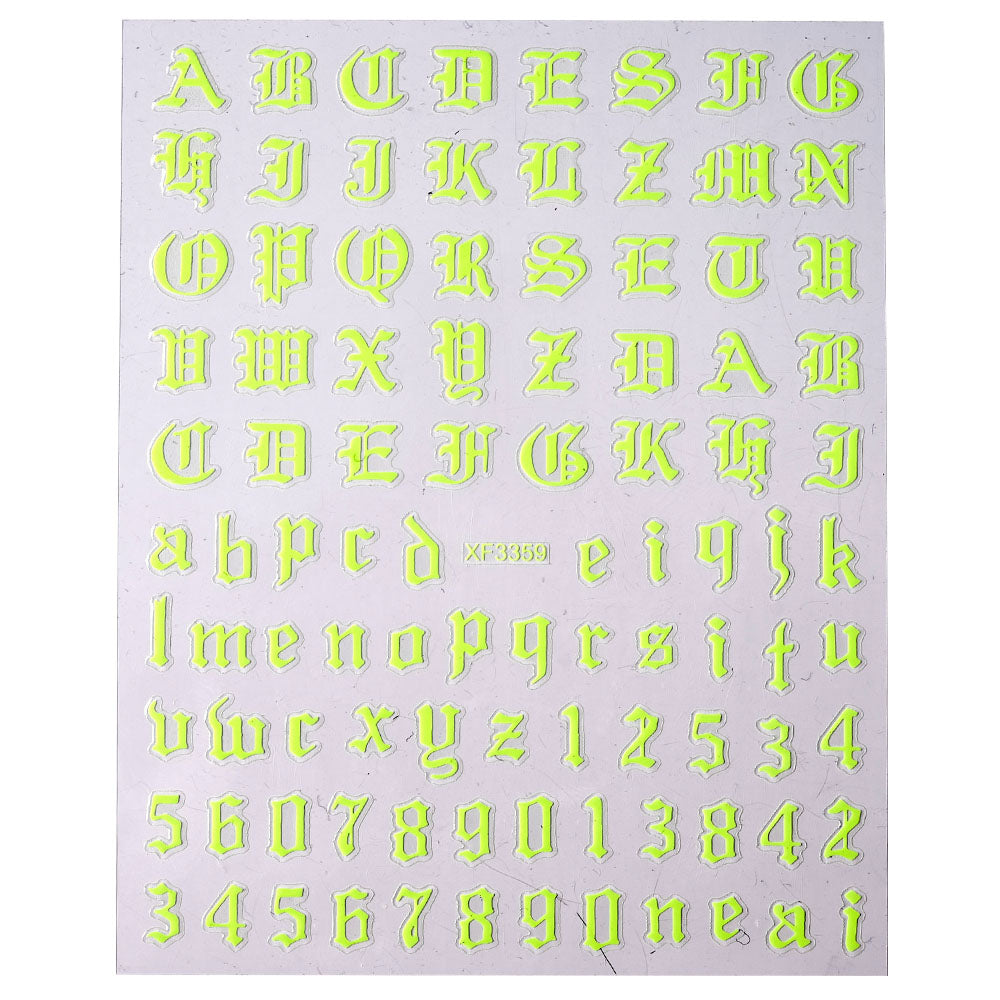 A B C D E S F G
H I J K L Z M N
O P Q R S E T U
V W X Y Z D A B
C D E F G K H I
a b p c d XF3359 e i q j k
l m e n o p q r s i t u
v w c x y z 1 2 5 3 4
5 6 0 7 8 9 0 1 3 8 4 2
3 4 5 6 7 8 9 0 n e a i